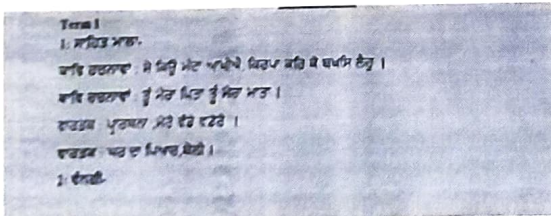 Term 1
1: ਸਾਹਿਤ ਮਾਲਾ-
ਕਾਵਿ ਰਚਨਾਵਾਂ : ਸੋ ਕਿਉ ਮੰਦਾ ਆਖੀਐ, ਕਿਰਪਾ ਕਰਿ ਕੈ ਬਖਸਿ ਲੈਹੁ ।
ਕਾਵਿ ਰਚਨਾਵਾਂ : ਤੂੰ ਮੇਰਾ ਪਿਤਾ ਤੂੰ ਮੇਰਾ ਮਾਤਾ ।
ਵਾਰਤਕ : ਪ੍ਰਾਰਥਨਾ ,ਮੇਰੇ ਵੱਡੇ ਵਡੇਰੇ ।
ਵਾਰਤਕ : ਘਰ ਦਾ ਪਿਆਰ,ਬੋਲੀ ।
2: ਵੰਨਗੀ-